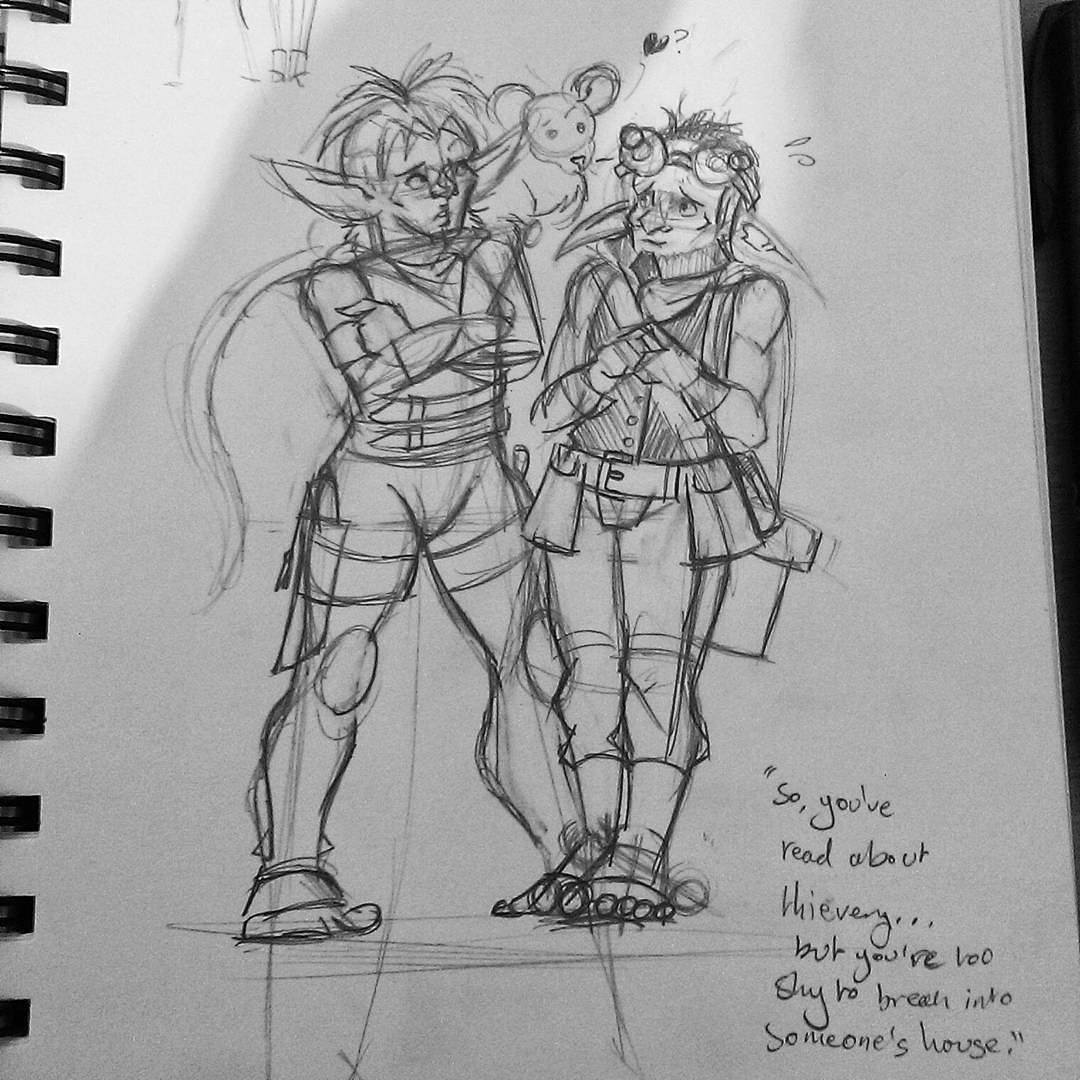 ?
"So, you've
read about
thievery...
but you're too
shy to break into
someone's house."